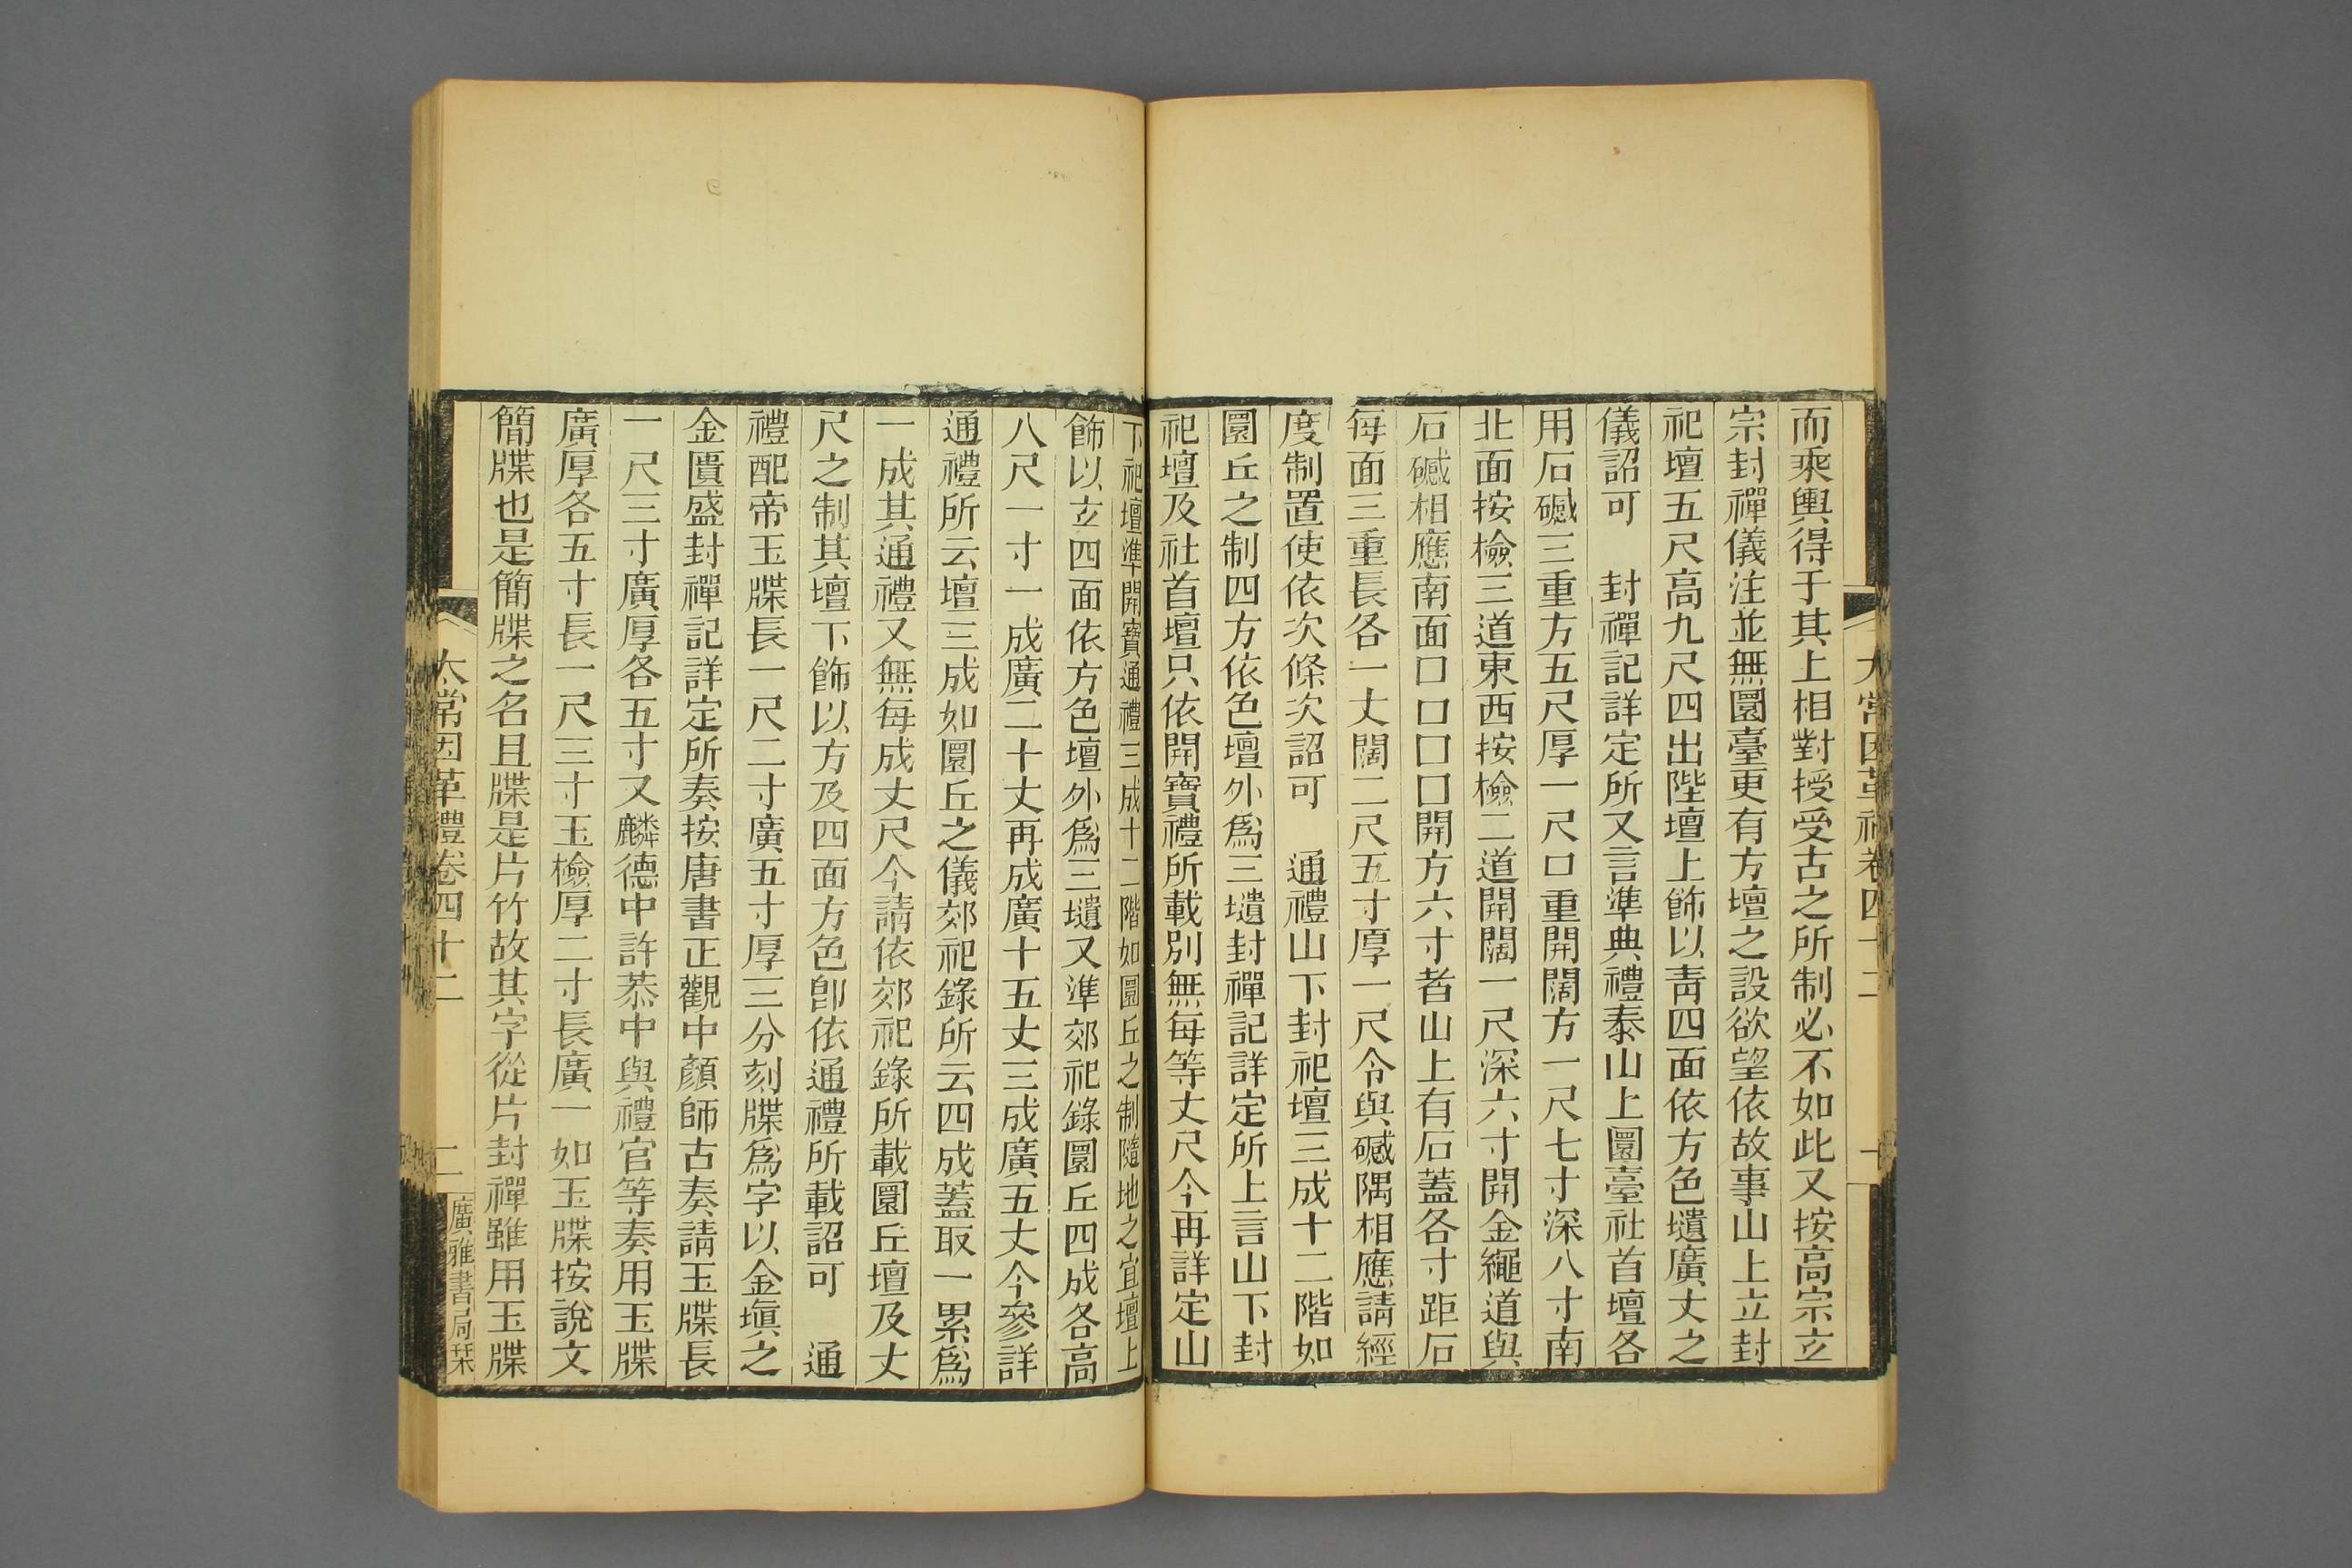 太常因革禮卷四十二
而乘輿得于其上相對授受古之所制必不如此又按高宗立
宗封禪儀注並無圜臺更有方壇之設欲望依故事山上立封
祀壇五尺高九尺四出陛壇上飾以靑四面依方色壝廣丈之
儀詔可　封禪記詳定所又言準典禮泰山上圜臺社首壇各
用石䃭三重方五尺厚一尺口重開闊方一尺七寸深八寸南
北面按檢三道東西按檢二道開闊一尺深六寸開金繩道與
石䃭相應南面口口口口開方六寸者山上有石蓋各寸距石
每面三重長各一丈闊二尺五寸厚一尺令與䃭隅相應請經
度制置使依次條次詔可　通禮山下封祀壇三成十二階如
圜丘之制四方依色壇外爲三壝封禪記詳定所上言山下封
祀壇及社首壇只依開寶禮所載別無每等丈尺今再詳定山
下祀壇準開寶通禮三成十二階如圜丘之制隨地之宜壇上
飾以玄四面依方色壇外爲三壝又準郊祀錄圜丘四成各高
八尺一寸一成廣二十丈再成廣十五丈三成廣五丈今參詳
通禮所云壇三成如圜丘之儀郊祀錄所云四成蓋取一累爲
一成其通禮又無每成丈尺今請依郊祀錄所載圜丘壇及丈
尺之制其壇下飾以方及四面方色卽依通禮所載詔可　通
禮配帝玉牒長一尺二寸廣五寸厚三分刻牒爲字以金塡之
金匱盛封禪記詳定所奏按唐書正觀中顏師古奏請玉牒長
一尺三寸廣厚各五寸又麟德中許恭中與禮官等奏用玉牒
廣厚各五寸長一尺三寸玉檢厚二寸長廣一如玉牒按說文
簡牒也是簡牒之名且牒是片竹故其字從片封禪雖用玉牒
太常因革禮卷四十二
二
廣雅書局栞